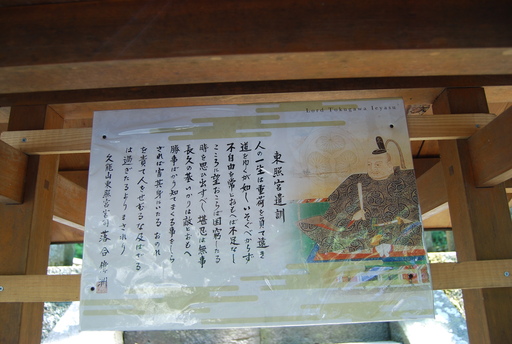 Lord Tokugawa Ieyasu
東照宮遺訓
人の一生は重荷を負て遠き
道をゆくが如し いそぐべからず
不自由を常とおもへば不足なし
こころに望おこらば困窮したる
時を思ひ出すべし 堪忍は無事
長久の基 いかりは敵とおもへ
勝事ばかり知てまくる事をしら
ざれば害其身にいたる おのれ
を責て人をせむるな 及ばざる
は過ぎたるよりまされり
久能山東照宮宮司 落合偉洲